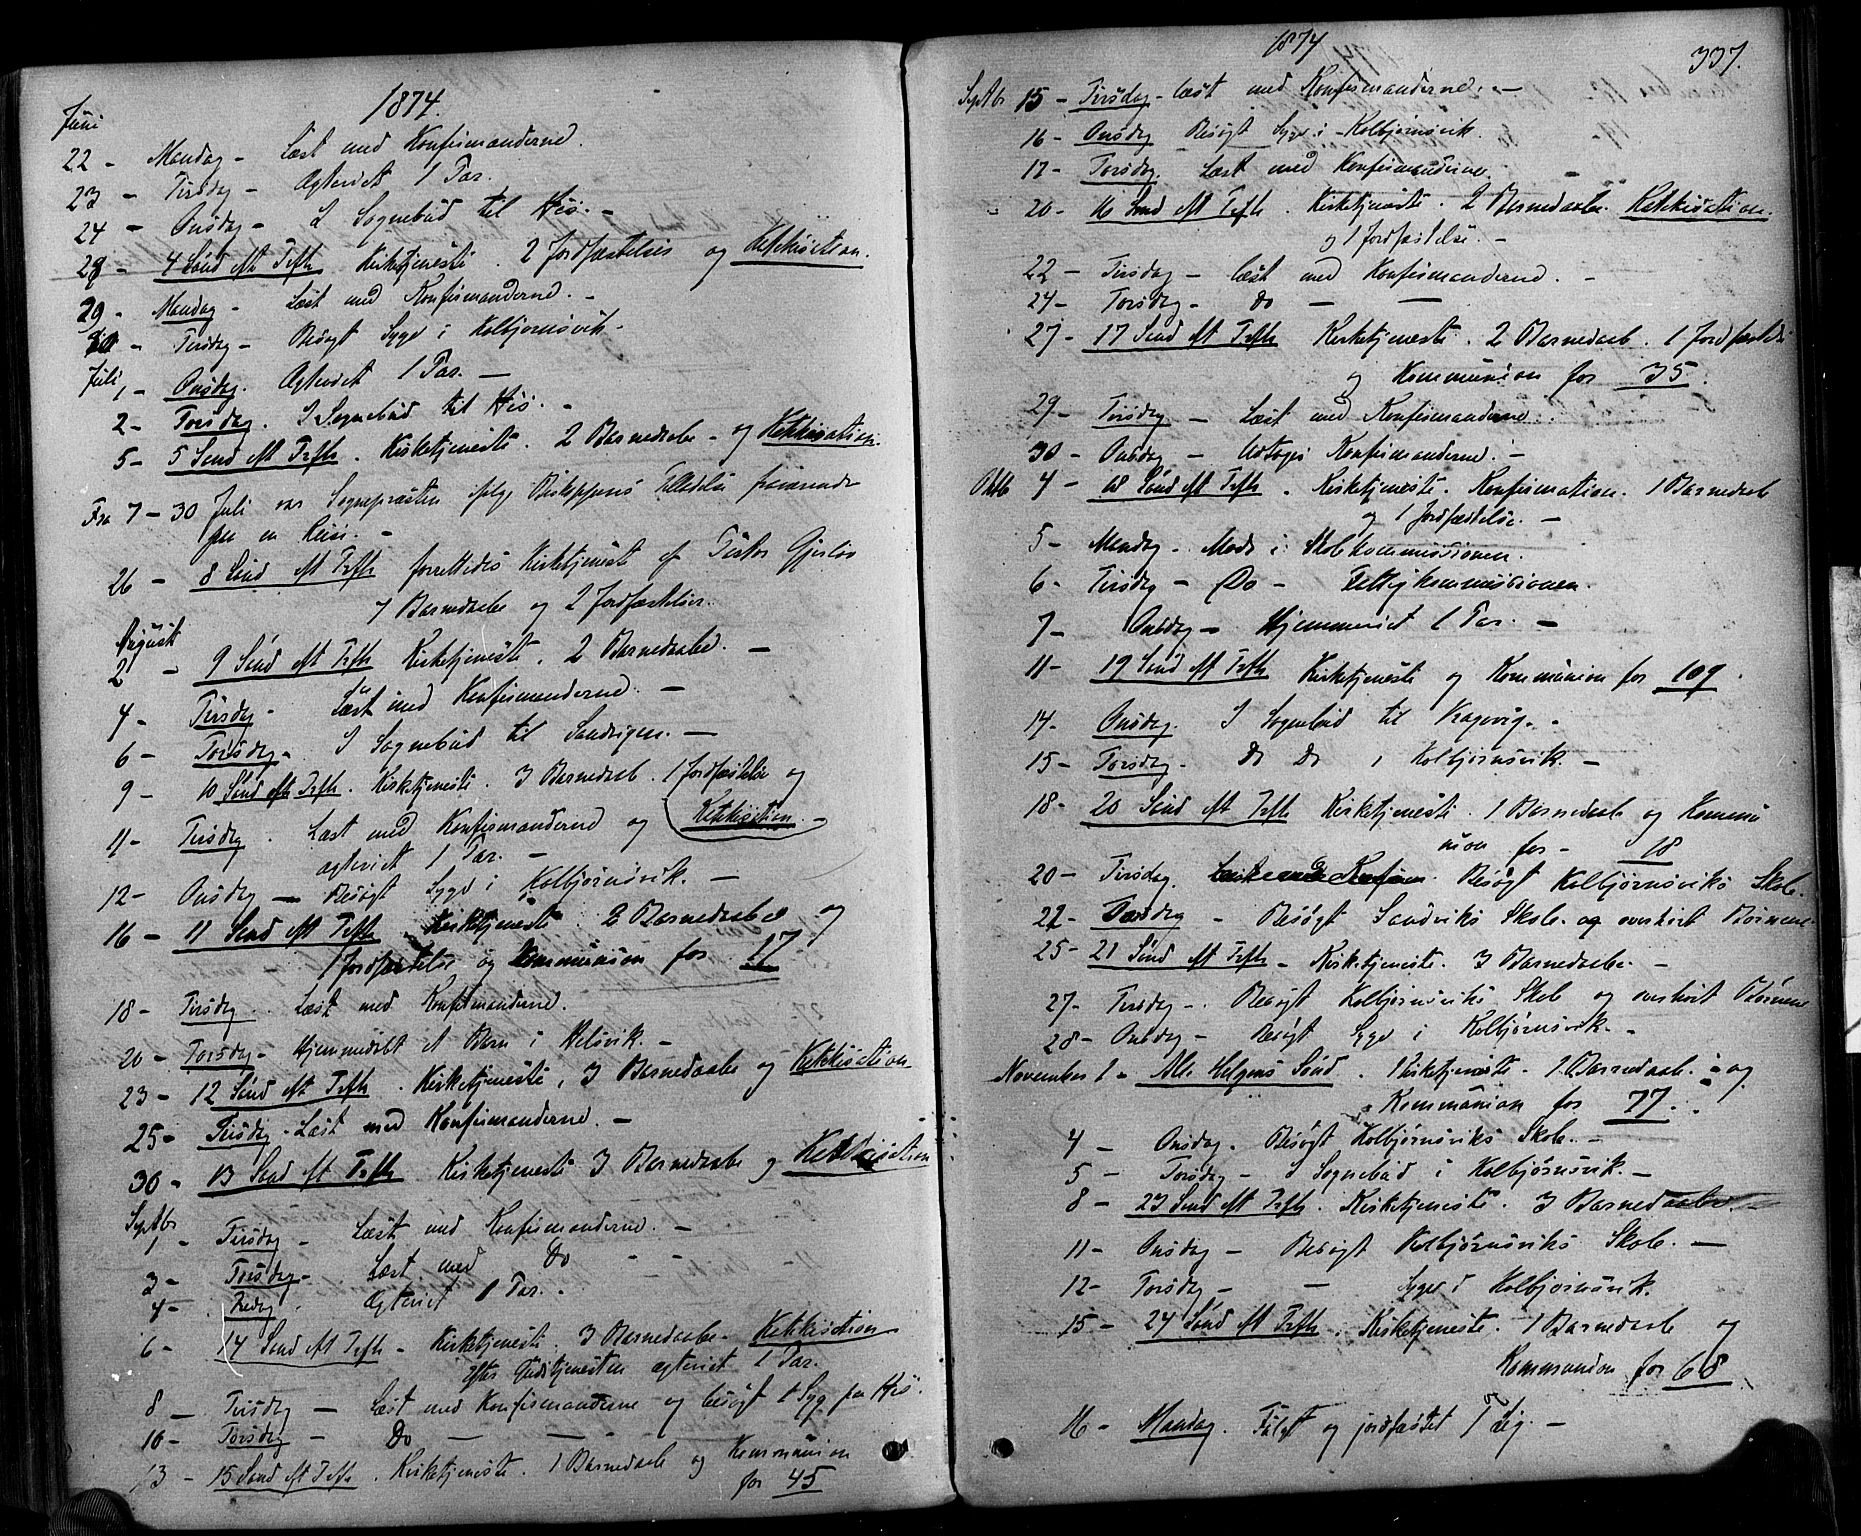 1874.
Juni
22 - Mandag - Læst med Konfirmanderne.
23 - Tirsdag - Ægteviet 1 Par.
24 - Onsdag - I Sognebud til Hisø. -
28 - 4 Sønd eft Trfth Kirketjeneste. 2 Jordfæstelser og Katekisation.
29 - Mandag - Læst med Konfirmanderne. -
30 - Tirsdag - Besøgt Syge i Kolbjørnsvik -
Juli
1 - Onsdag. Ægteviet 1 Par. -
2 - Torsdag. I Sognebud til Hisø. -
5 - 5 Sønd eft Trfth. Kirketjeneste. 2 Barnedaabe - og Katekisation.
Fra 7 - 30 Juli var Sognepræsten ifølge Biskoppens Tilladelse fraværende
paa en Reise. -
26 - 8 Sønd eft Trfth forrettedes Kirketjeneste af Pastor Gjerløw
7 Barnedaabe og 2 Jordfæstelser.
August
2 - 9 Sønd eft Trfth Kirketjeneste. 2 Barnedaabe. -
4 - Tirsdag - Læst med Konfirmanderne. -
6 - Torsdag - I Sognebud til Sandvigen. -
9 - 10 Sønd eft Trfth. Kirketjeneste. 3 Barnedaab. 1 Jordfæstelse og
Katekisation. -
11 - Tirsdag. Læst med Konfirmanderne og
ægteviet 1 Par. -
12 - Onsdag - Besøgt Syge i Kolbjørnsvik. -
16 - 11 Sønd eft Trfth Kirketjeneste 2 Barnedaabe og
1 Jordfæstelse og Kommunion for 17
18 - Tirsdag. Læst med Konfirmanderne.
20 - Torsdag - Hjemmedøbt et Barn i Helsvik. -
23 - 12 Sønd eft Trfth. Kirketjeneste, 3 Barnedaabe og Katekisation
25 - Tirsdag - Læst med Konfirmanderne. -
30 - 13 Sønd eft Trfth Kirketjeneste 3 Barnedaabe og Katekisation
Septbr
1 - Tirsdag - Læst med Konfirmanderne. -
3 - Torsdag - Læst med Do - -
4 - Fredag. Ægteviet 1 Par. -
6 - 14 Sønd eft Trfth - Kirketjeneste. 3 Barnedaabe - Katekisation
Efter Gudstjenesten ægteviet 1 Par.
8 - Tirsdag - Læst med Konfirmanderne og besøgt 1 Syg paa Hisø.
10 - Torsdag - Do - - -
13 - 15 Sønd eft Trfth. Kirketjeneste. 1 Barnedaabe og Kommunion
for 45
1874
337.
Septbr 15 - Tirsdag - læst med Konfirmanderne. -
16 - Onsdag Besøgt Syge i - Kolbjørnsvik.
17 - Torsdag. Læst med Konfirmanderne. -
20 - 16 Sønd eft Trfth. Kirketjeneste. 2 Barnedaabe. Katekisation.
og 1 Jordfæstelse. -
22 - Tirsdag - læst med Konfirmanderne. -
24 - Torsdag - do - -
27 - 17 Sønd eft Trfth Kirketjeneste. 2 Barnedaab. 1 Jordfæstelse
og Kommunion for 35.
29 - Tirsdag - Læst med Konfirmanderne. -
30 - Onsdag - Udtoges Konfirmanderne. -
Oktb 4 - 18 Sønd eft Trfth. Kirketjeneste. Konfirmation. 1 Barnedaab
og 1 Jordfæstelse. -
5 - Mandag - Møde i Skolekommissionen.
6 - Tirsdag - Do - Fattigkommissionen.
7 - Onsdag - Hjemmeviet 1 Par. -
11 - 19 Sønd eft Trfth Kirketjeneste og Kommunion for 109.
14 - Onsdag. I Sognebud til Kragvig. -
15 - Torsdag - Do Do i Kolbjørnsvik. -
18 - 20 Sønd eft Trfth Kirketjeneste. 1 Barnedaabe og Kommu
nion for - 18
20 - Tirsdag. Besøgt Kolbjørnsviks Skole.
22 - Torsdag - Besøgt Sandviks Skole og overhørt Børnene
25 - 21 Sønd eft Trfth - Kirketjeneste. 3 Barnedaabe. -
27 - Tirsdag - Besøgt Kolbjørnsviks Skole og overhørt Børnene
28 - Onsdag - Besøgt Syge i Kolbjørnsvik. -
November 1 - Alle Helgens Sønd. Kirketjeneste - 1 Barnedaab. - og
Kommunion for 77.
4 - Onsdag. Besøgt Kolbjørnsviks Skole. -
5 - Torsdag - I Sognebud i Kolbjørnsvik. -
8 - 23 Sønd eft Trfth. Kirketjeneste. 3 Barnedaabe. -
11 - Onsdag - Besøgt Kolbjørnsviks Skole. -
12 - Torsdag - - Syge i Kolbjørnsvik.
15 - 24 Sønd eft Trfth. Kirketjeneste. 1 Barnedaab og
Kommunion for 68
16 - Mandag. Fulgt og jordfæstet 1 Lig. -